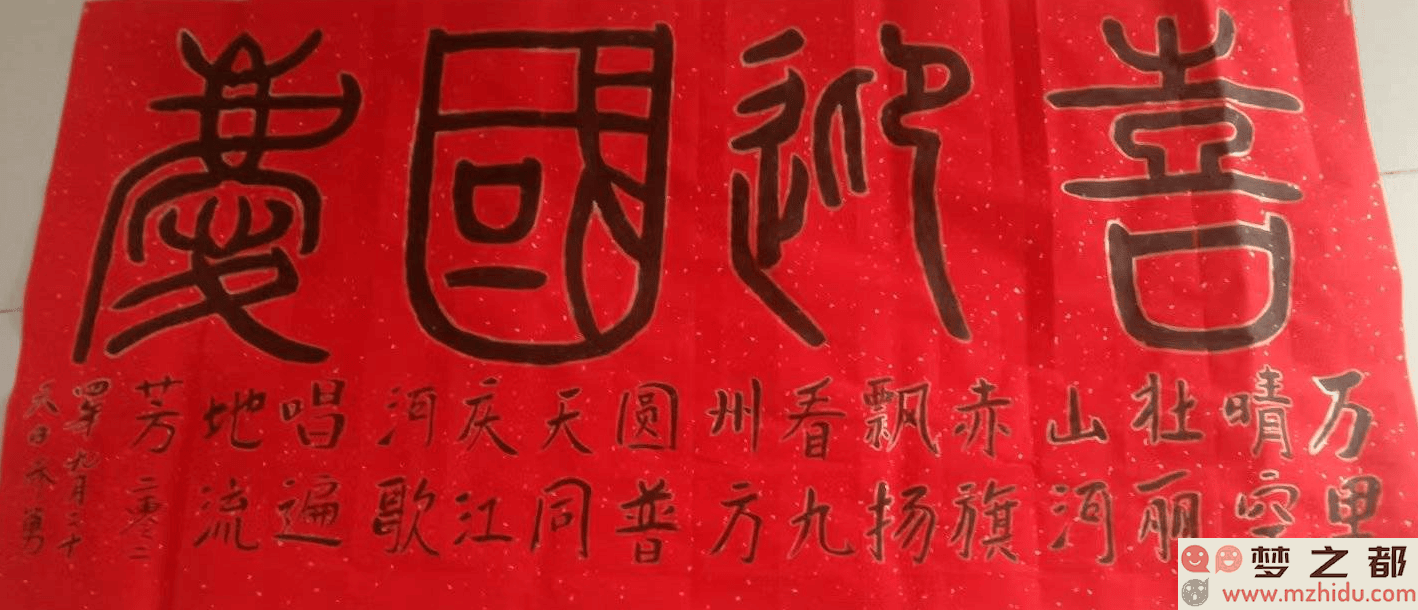 喜迎國慶
万里
晴空
壮丽
山河
赤旗
飘扬
看九
州方
圆普
天同
庆江
河歌
唱遍
地流
芳二零二
四年九月二十
日 勇
梦之都
www.mzhidu.com